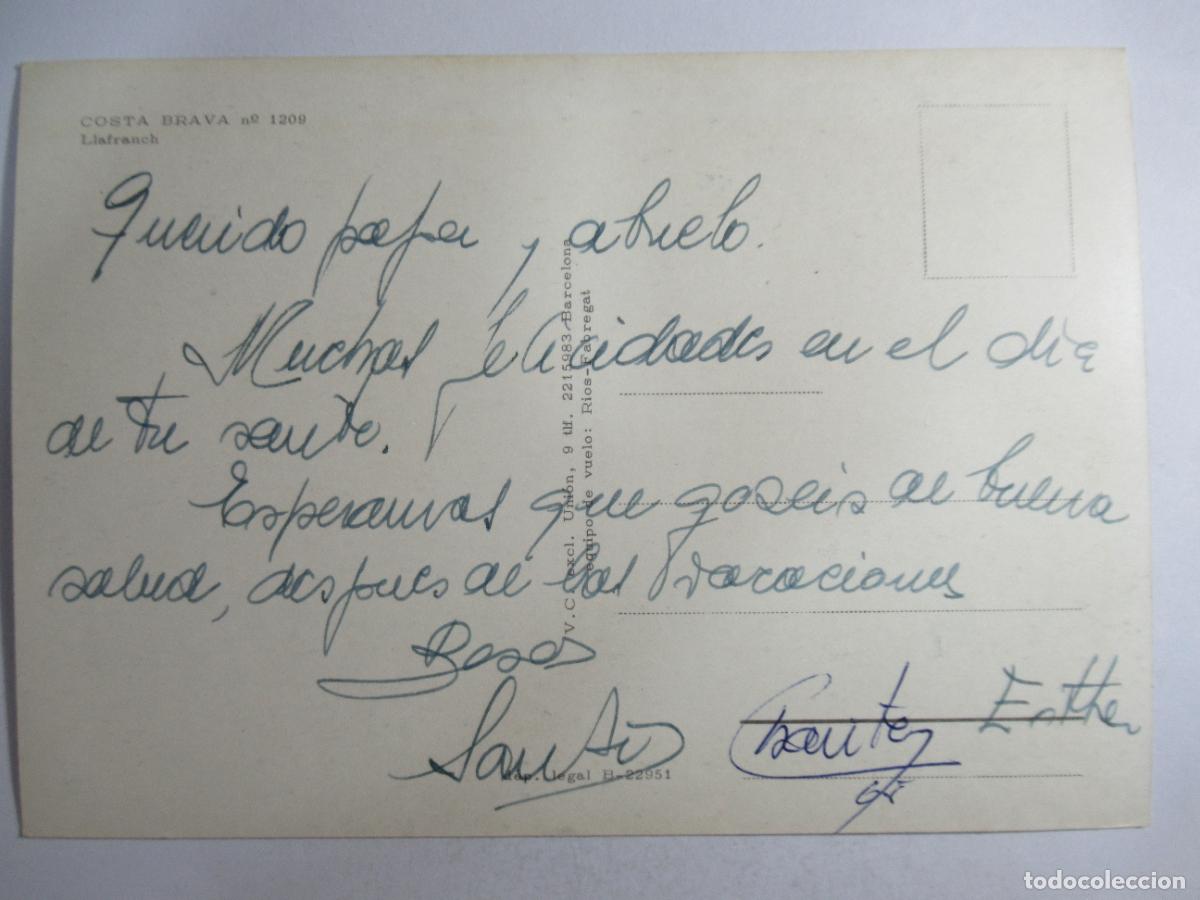 COSTA BRAVA nº 1209
Llafranch
Querido papa y abuelo.
Muchas felicidades en el día
de tu santo.
Esperamos que gozeis de buena
salud, despues de las vacaciones
Besos
Santi
Esther
V.C. excl. Unión, 9 tlf. 2215983 Barcelona
equipo de vuelo: Rios-Fabregat
dep. legal B-22951
todocoleccion